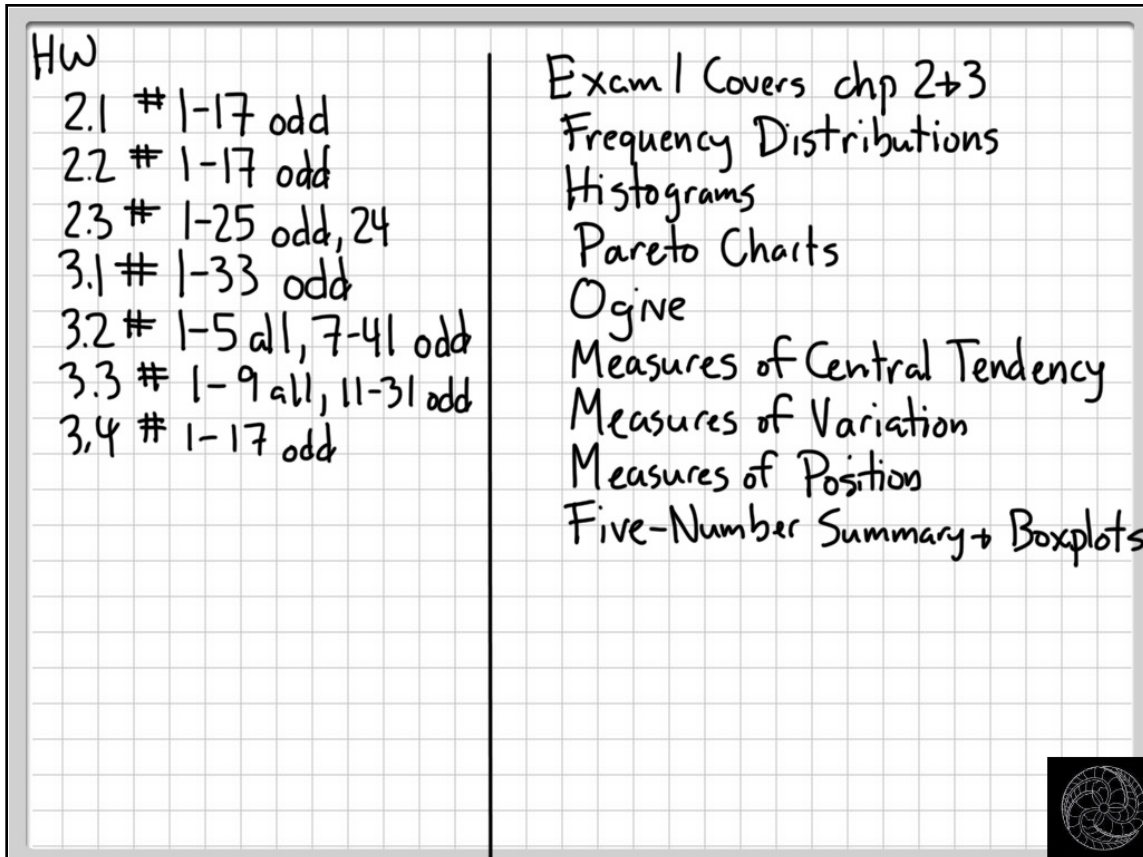 HW
2.1 # 1-17 odd
2.2 # 1-17 odd
2.3 # 1-25 odd, 24
3.1 # 1-33 odd
3.2 # 1-5 all, 7-41 odd
3.3 # 1-9 all, 11-31 odd
3.4 # 1-17 odd
Exam 1 Covers chp 2+3
Frequency Distributions
Histograms
Pareto Charts
Ogive
Measures of Central Tendency
Measures of Variation
Measures of Position
Five-Number Summary + Boxplots